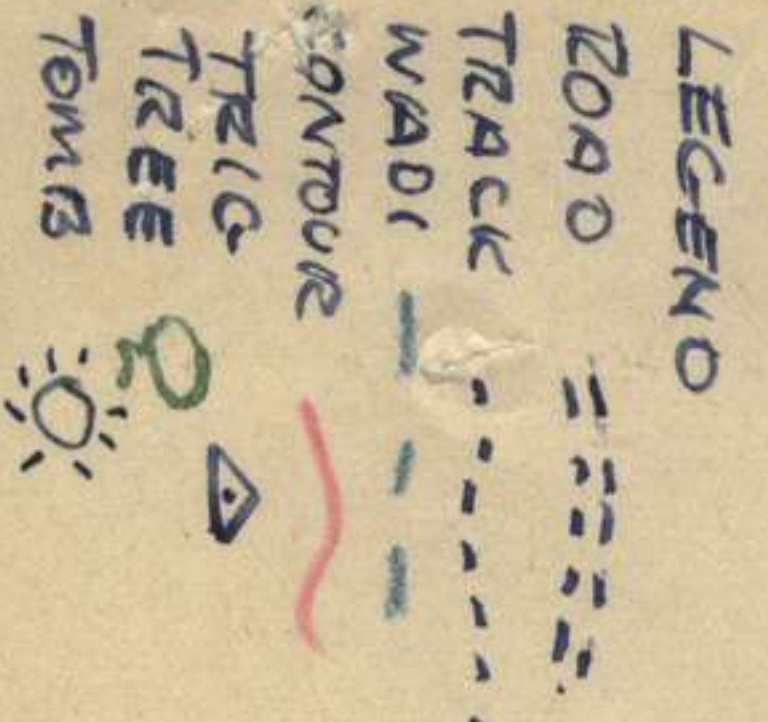 LEGEND
ROAD
TRACK
WADI
CONTOUR
TRIG
TREE
TOMB